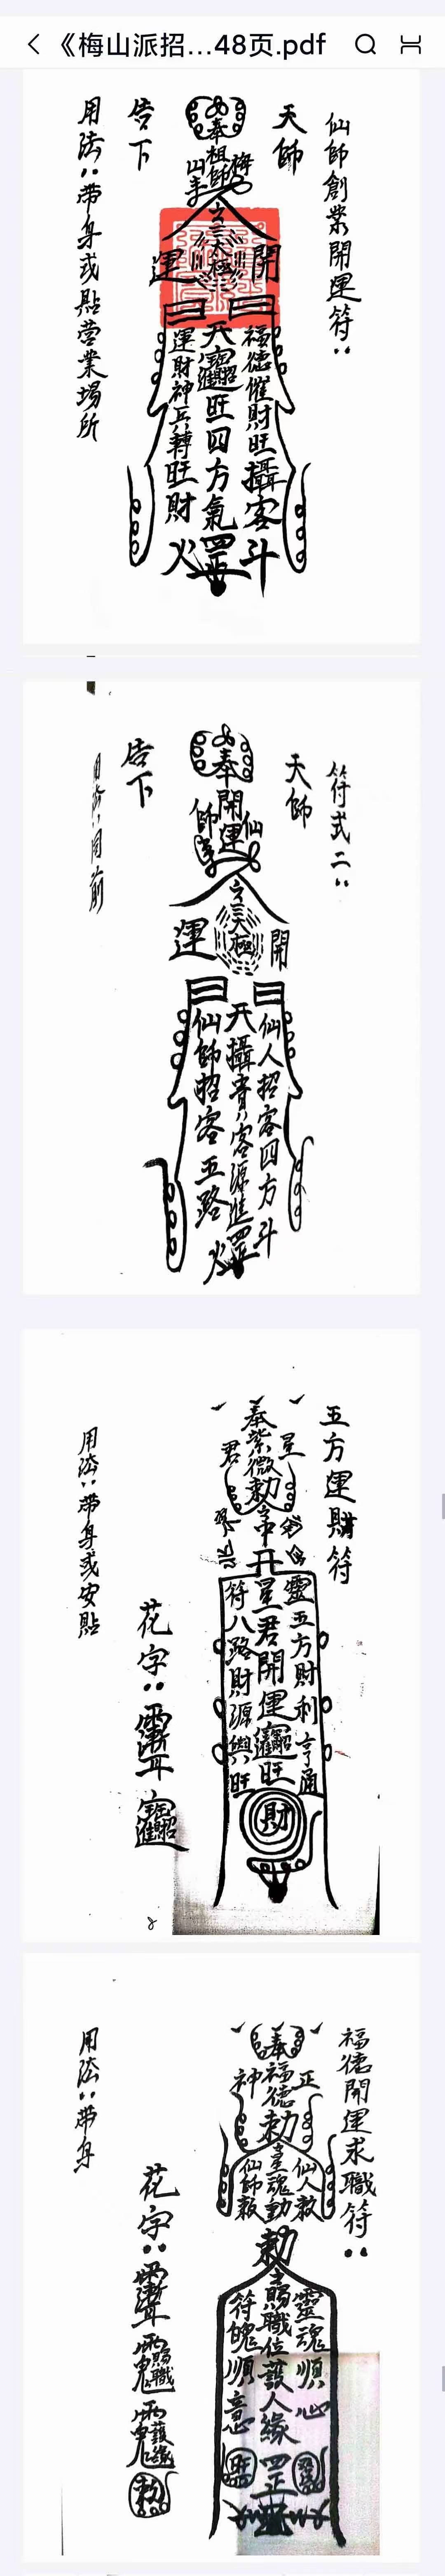 《梅山派招...48页.pdf
仙師創業開運符：
天師
奉
祖師
梅
山
開
太極
運
福德催財旺攝客
旺四方氣
運財神兵轉旺財
斗
罡
火
告下
用法：帶身或貼营業場所
符式二：
天師
奉
開運
仙
師
開
太極
運
仙人招客四方
攝貴人客源進
仙師招客五路
斗
罡
火
告下
用法：同前
五方運財符
星
奉紫微勅
君
靈五方財利亨通
星君開運
旺
符八路財源興旺
財
花字：
用法：帶身或安貼
福德開運求職符：
正
奉福德勅
神
仙人敕
靈魂動
仙師敕
勅
靈魂順心
賜職位護人緣
符魄順意
旺
罡
花字：
用法：帶身